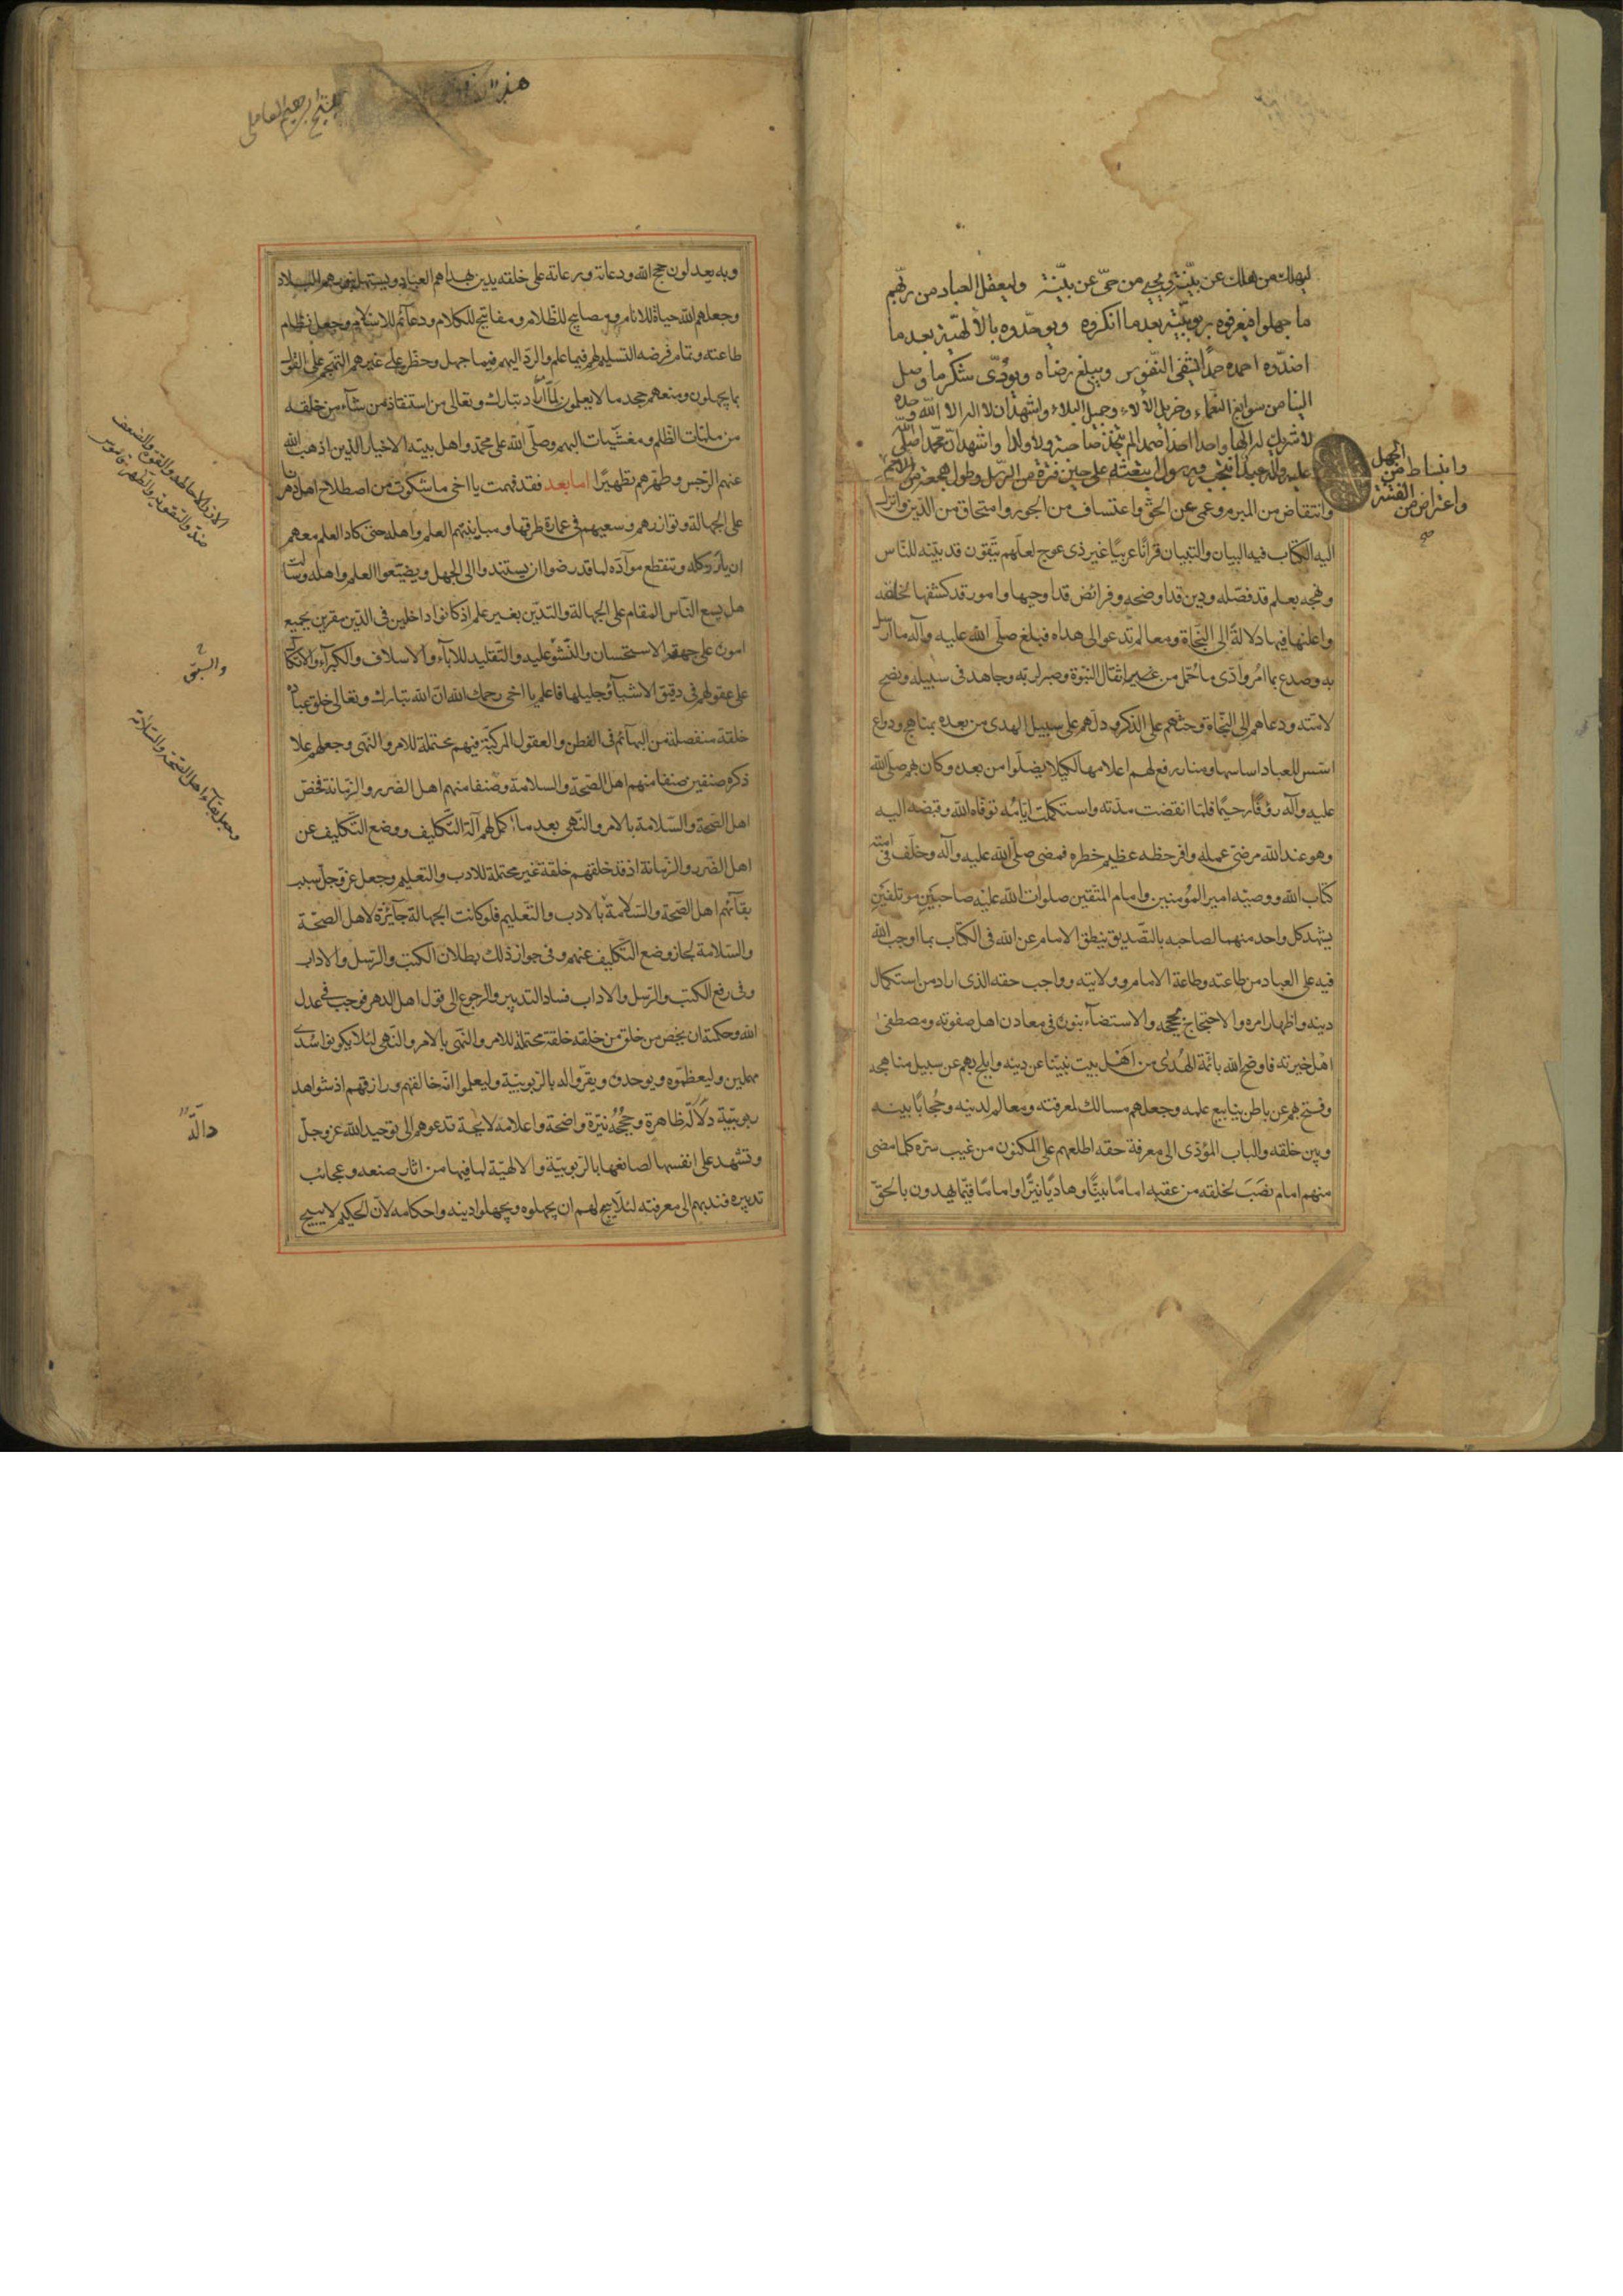 ليهلك من هلك عن بيّنة ويحيى من حيّ عن بيّنة وليعقل العباد من ربّهم
ما جهلوا فيعرفوه بربوبيّته بعد ما انكروه ويوحّدوه بالالهيّة بعد ما
اضدّوه احمده حمدًا يشفى النّفوس ويبلغ رضاه ويؤدّى شكر ما وصل
الينا من سوابغ النعماء وجزيل الآلاء وجميل البلاء واشهد ان لا اله الا الله وحده
لا شريك له الها واحدا احدا صمدا لم يتخذ صاحبة ولا ولدا واشهد انّ محمّدا صلّى الله
عليه وآله عبد انتجبه ورسول ابتعثه على حين فترة من الرّسل وطول هجعة من الامم
وانبساط من الجهل
واعتراض من الفتنة
صح
وانتقاض من المبرم وعمى عن الحقّ واعتساف من الجور وامتحاق من الدّين وانزل
اليه الكتاب فيه البيان والتبيان قرآنًا عربيًا غير ذى عوج لعلّهم يتّقون قد بيّنه للنّاس
ونهجه بعلم قد فصّله ودين قد اوضحه وفرائض قد اوجبها وامور قد كشفها لخلقه
واعلنها فيها دلالةً الى النّجاة ومعالم تدعو الى هداه فبلّغ صلّى الله عليه وآله ما ارسل
به وصدع بما امُر وادّى ما حُمّل من اثقال النبوّة وصبر لربّه وجاهد فى سبيله ونصح
لامّته ودعاهم الى النّجاة وحثّهم على الذّكر ودلّهم على سبيل الهدى من بعده بمناهج ودواع
اسّس للعباد اساسها ومنابر رفع لهم اعلامها لكيلا يضلّوا من بعده وكان بهم صلّى الله
عليه وآله رؤفًا رحيمًا فلمّا انقضت مدّته واستكملت ايّامُه توفّاه الله وقبضه اليه
وهو عند الله مرضىّ عمله وافر حظه عظيم خطره فمضى صلّى الله عليه وآله وخلّف فى امّته
كتاب الله ووصيّه امير المؤمنين وامام المتّقين صلوات الله عليه صاحبَين مؤتلفَين
يشهد كل واحد منهما لصاحبه بالتّصديق ينطق الامام عن الله فى الكتاب بما اوجب الله
فيه على العباد من طاعته وطاعة الامام وولايته وواجب حقه الذى اراد من استكمال
دينه واظهار امره والاحتجاج بحججه والاستضآءة بنوره فى معادن اهل صفوته ومصطفى
اهل خيرته فاوضح الله بائمّة الهُدى من اهل بيت نبيّنا عن دينه وابلج بهم عن سبيل مناهجه
وفتح بهم عن باطن ينابيع علمه وجعلهم مسالك لمعرفته ومعالم لدينه وحُجابًا بينه
وبين خلقه والباب المؤدّى الى معرفة حقه اطلعهم على المكنون من غيب سرّه كلما مضى
منهم امام نصَبَ لخلقه من عقبه امامًا بيّنًا وهاديًا نيّرًا واماما قيّما يهدون بالحقّ
ابرهيم العاملى
وبه يعدلون حجج الله ودعاته ورعاته على خلقه يدين بهداهم العباد ويستهل بنورهم البلاد
وجعلهم الله حياة للانام ومصابيح للظّلام ومفاتيح للكلام ودعآئم للاسلام وجعل نظام
طاعته وتمام فرضه التسليم لهم فيما علم والردّ اليهم فيما جهل وحظر على غيرهم التهجّم على القول
بما يجهلون ومنعهم جحد ما لا يعلمون لمّا اراد تبارك وتعالى من استنقاذ من شآء من خلقه
من ملمّات الظّلم ومغشيّات البهم وصلّى الله على محمّد واهل بيته الاخيار الذين اذهب الله
عنهم الرّجس وطهّرهم تطهيرًا اما بعد فقد فهمت يا اخى ما شكوت من اصطلاح اهل دهرنا
على الجهالة وتوازرهم وسعيهم فى عمارة طرقها ومباينتهم العلم واهله حتى كاد العلم معهم
ان يأرز كله وتنقطع موآدّه لما قد رضوا ان يستندوا الى الجهل ويضيّعوا العلم واهله وسألت
هل يسع النّاس المقام على الجهالة والتديّن بغير علم اذ كانوا داخلين فى الدّين مقرين بجميع
اموره على جهة الاستحسان والنّشوء عليه والتّقليد للابآء والاسلاف والكبرآء والاتكال
على عقولهم فى دقيق الاشيآء وجليلها فاعلم يا اخى رحمك الله انّ الله تبارك وتعالى خلق عباده
خلقة منفصلة من البهآئم فى الفطن والعقول المركّبة فيهم محتملة للامر والنّهى وجعلهم علا
ذكره صنفين صنفا منهم اهل الصّحة والسلامة وصنفا منهم اهل الضرر والزّمانة فخصّ
اهل الصّحة والسّلامة بالامر والنّهى بعد ما اكمل لهم آلة التّكليف ووضع التّكليف عن
اهل الضّرر والزّمانة اذ قد خلقهم خلقة غير محتملة للادب والتعليم وجعل عزّ وجلّ سبب
بقآئهم اهل الصّحة والسّلامة بالادب والتّعليم فلو كانت الجهالة جآئزة لاهل الصّحّة
والسّلامة لجاز وضع التّكليف عنهم وفى جواز ذلك بطلان الكتب والرّسل والاداب
وفى رفع الكتب والرّسل والاداب فساد التدبير والرجوع الى قول اهل الدهر فوجب فى عدل
الله وحكمته ان يخص من خلق من خلقه خلقة محتملة للامر والنّهى بالامر والنّهى لئلا يكونوا سدًى
مهملين وليعظّموه ويوحدوه ويقرّوا له بالرّبوبيّة وليعلموا انّه خالقهم ورازقهم اذ شواهد
ربوبيّته دالّة ظاهرة وحججُه نيّرة واضحة واعلامه لايحة تدعوهم الى توحيد الله عزّ وجلّ
وتشهد على انفسها لصانعها بالرّبوبيّة والالهيّة لما فيها من اثار صنعه وعجائب
تدبيره فندبهم الى معرفته لئلّا يبيح لهم ان يجهلوه ويجهلوا دينه واحكامه لانّ الحكيم لا يبيح
الازر الاحاطه والقوة والضعف
ضدّ والتقوية والظهر قاموس
وجعل بقآء اهل الصّحة والسلامة
دالّة